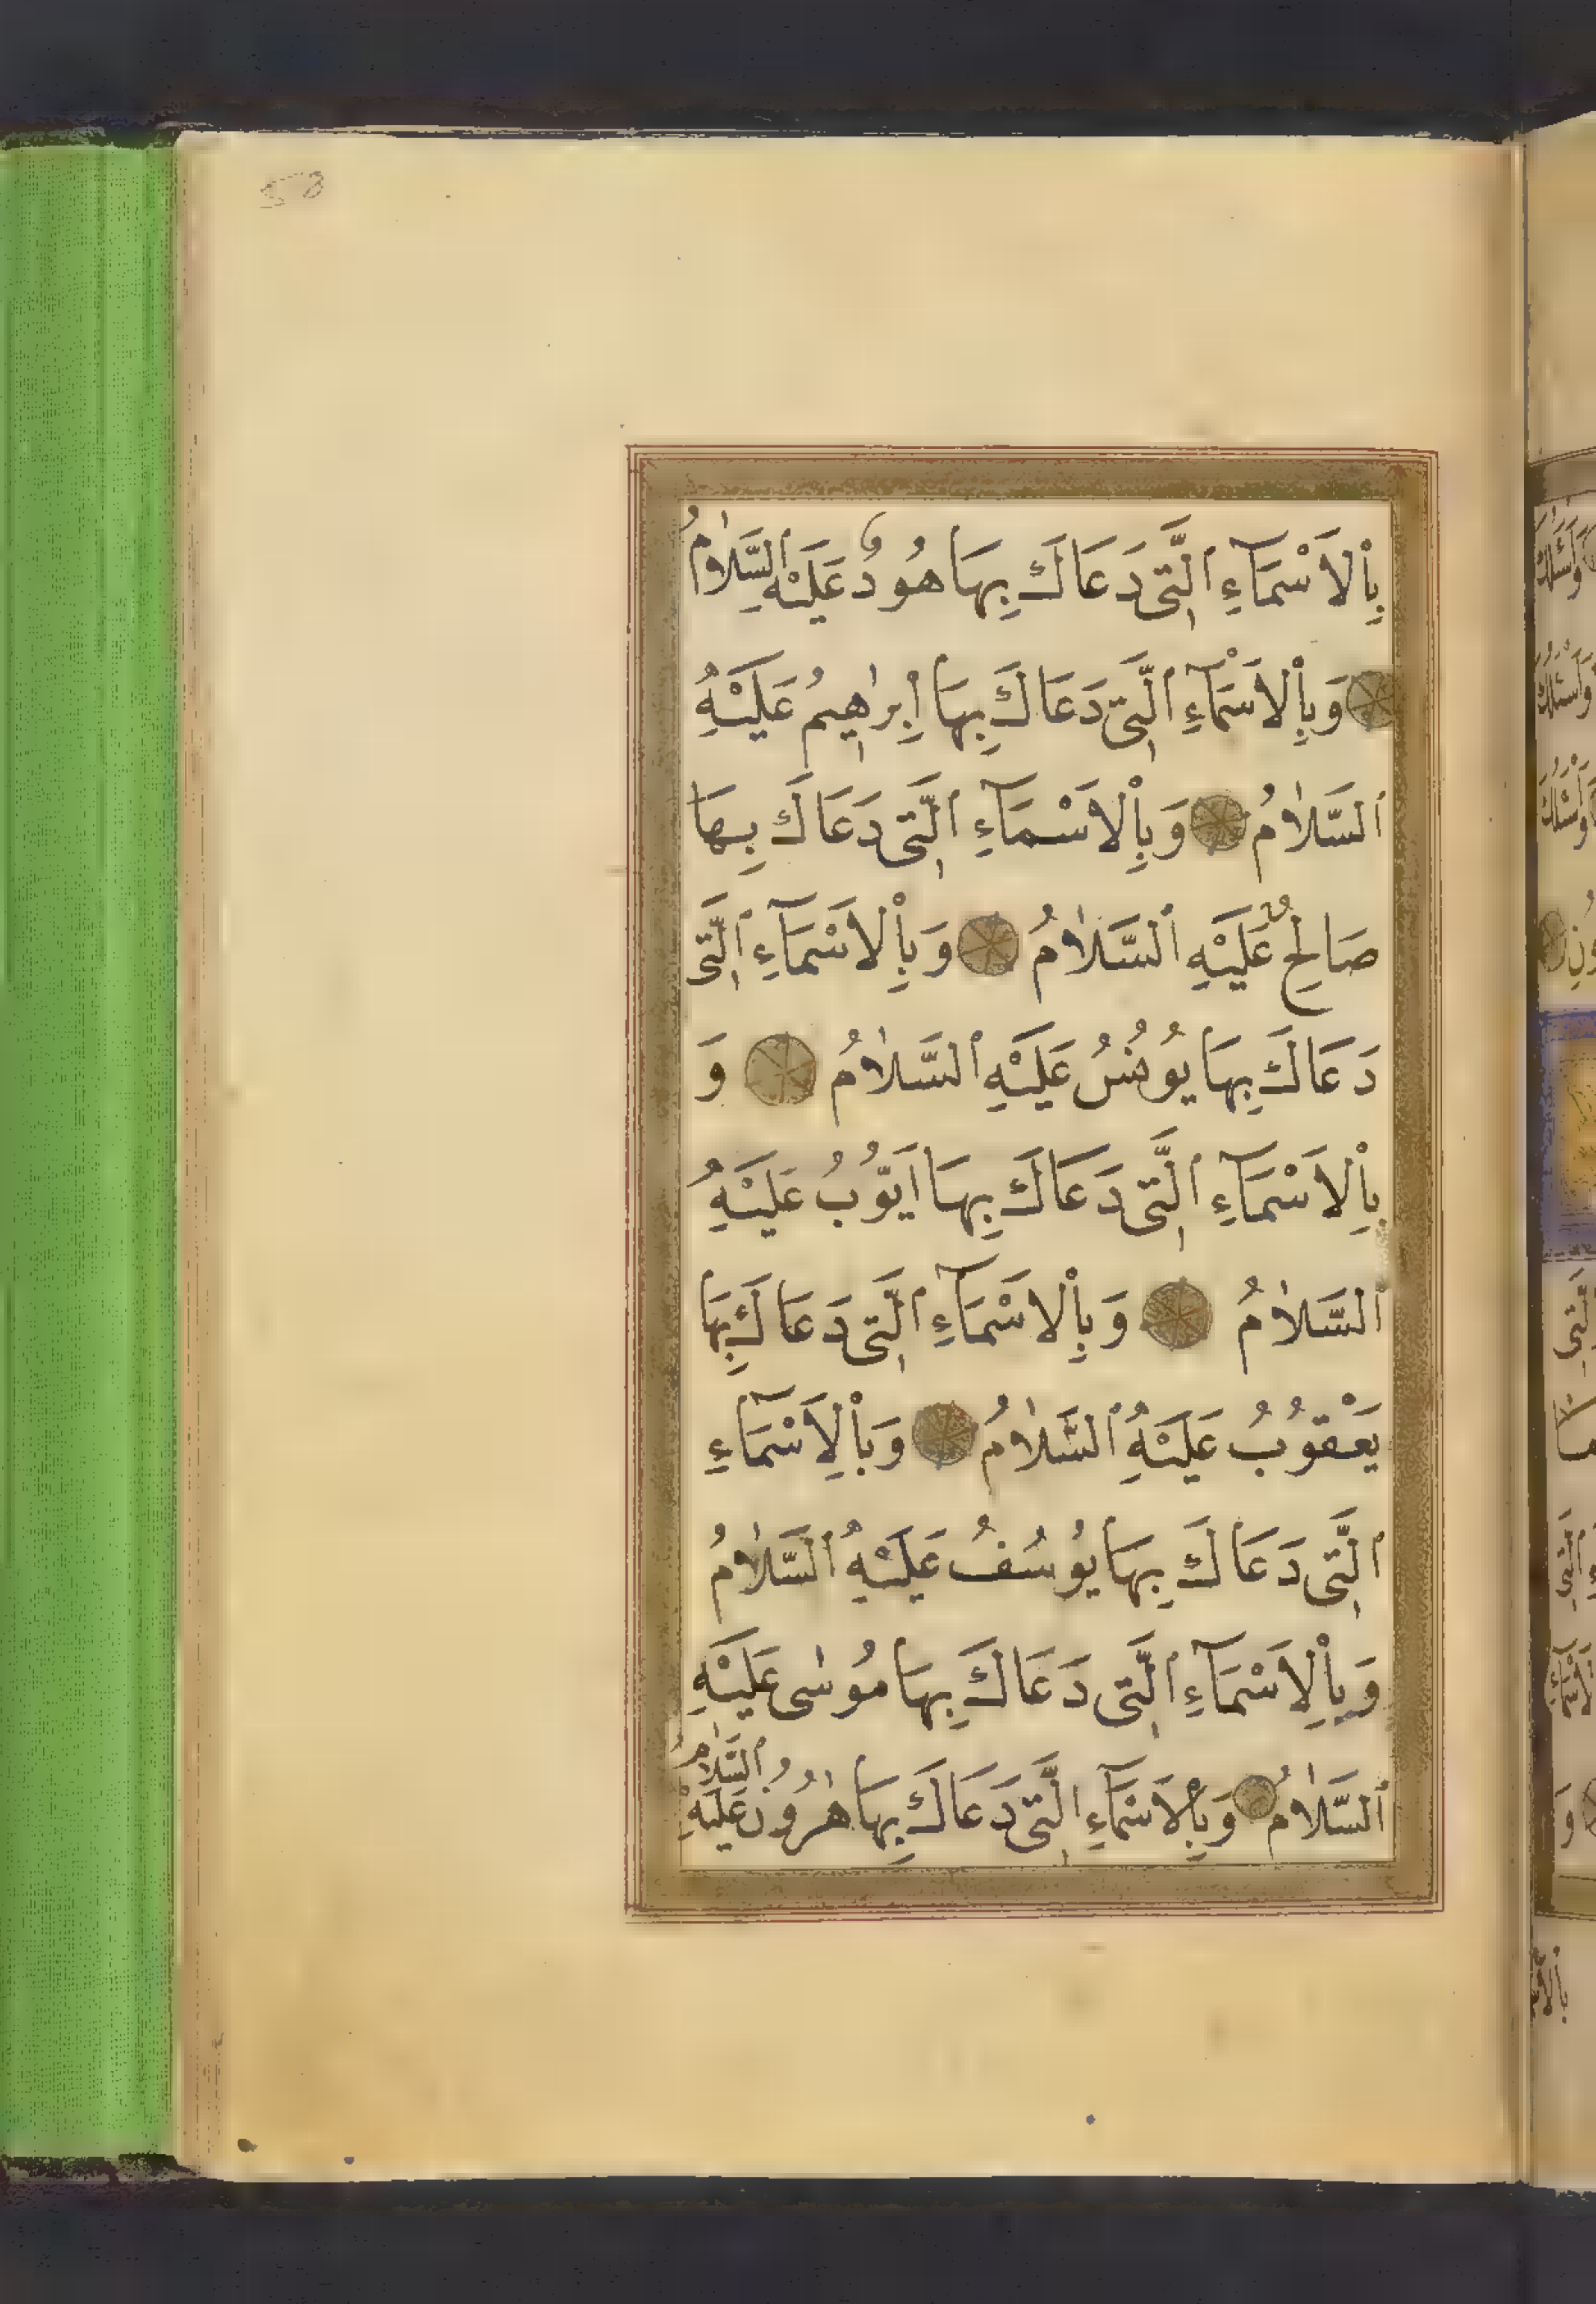 58
بِاْلاَسْمَآءِ الَّتِى دَعَاكَ بِهَا هُودٌ عَلَيْهِ السَّلاٰمُ
وَبِاْلاَسْمَآءِ الَّتِى دَعَاكَ بِهَا اِبْرٰهِيمُ عَلَيْهِ
السَّلاٰمُ وَبِاْلاَسْمَآءِ الَّتِى دَعَاكَ بِهَا
صَالِحٌ عَلَيْهِ السَّلاٰمُ وَبِاْلاَسْمَآءِ الَّتِى
دَعَاكَ بِهَا يُونُسُ عَلَيْهِ السَّلاٰمُ وَ
بِاْلاَسْمَآءِ الَّتِى دَعَاكَ بِهَا اَيُّوبُ عَلَيْهِ
السَّلاٰمُ وَبِاْلاَسْمَآءِ الَّتِى دَعَاكَ بِهَا
يَعْقُوبُ عَلَيْهِ السَّلاٰمُ وَبِاْلاَسْمَآءِ
الَّتِى دَعَاكَ بِهَا يُوسُفُ عَلَيْهِ السَّلاٰمُ
وَبِاْلاَسْمَآءِ الَّتِى دَعَاكَ بِهَا مُوسٰى عَلَيْهِ
السَّلاٰمُ وَبِاْلاَسْمَآءِ الَّتِى دَعَاكَ بِهَا هٰرُونُ عَلَيْهِ السَّلاٰمُ